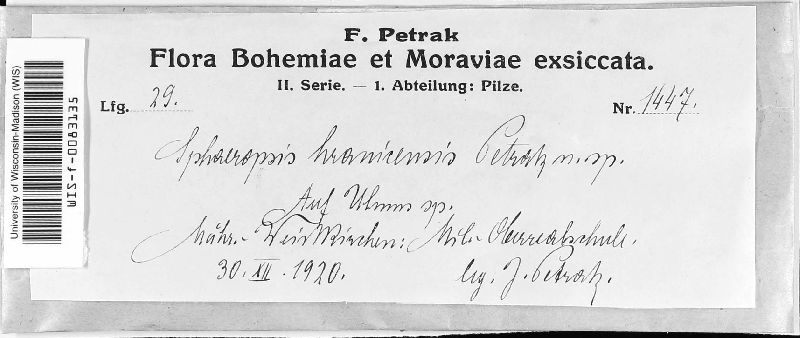 F. Petrak
Flora Bohemiae et Moraviae exsiccata.
II. Serie. — 1. Abteilung: Pilze.
Lfg. 29.
Nr. 1447.
Sphaeropsis hranicensis Petrak n. sp.
Auf Ulmus sp.
Mähr.-Weisskirchen: Mil.-Oberrealschule.
30. XII. 1920.
leg. J. Petrak.
University of Wisconsin-Madison (WIS)
WIS-f-0083135